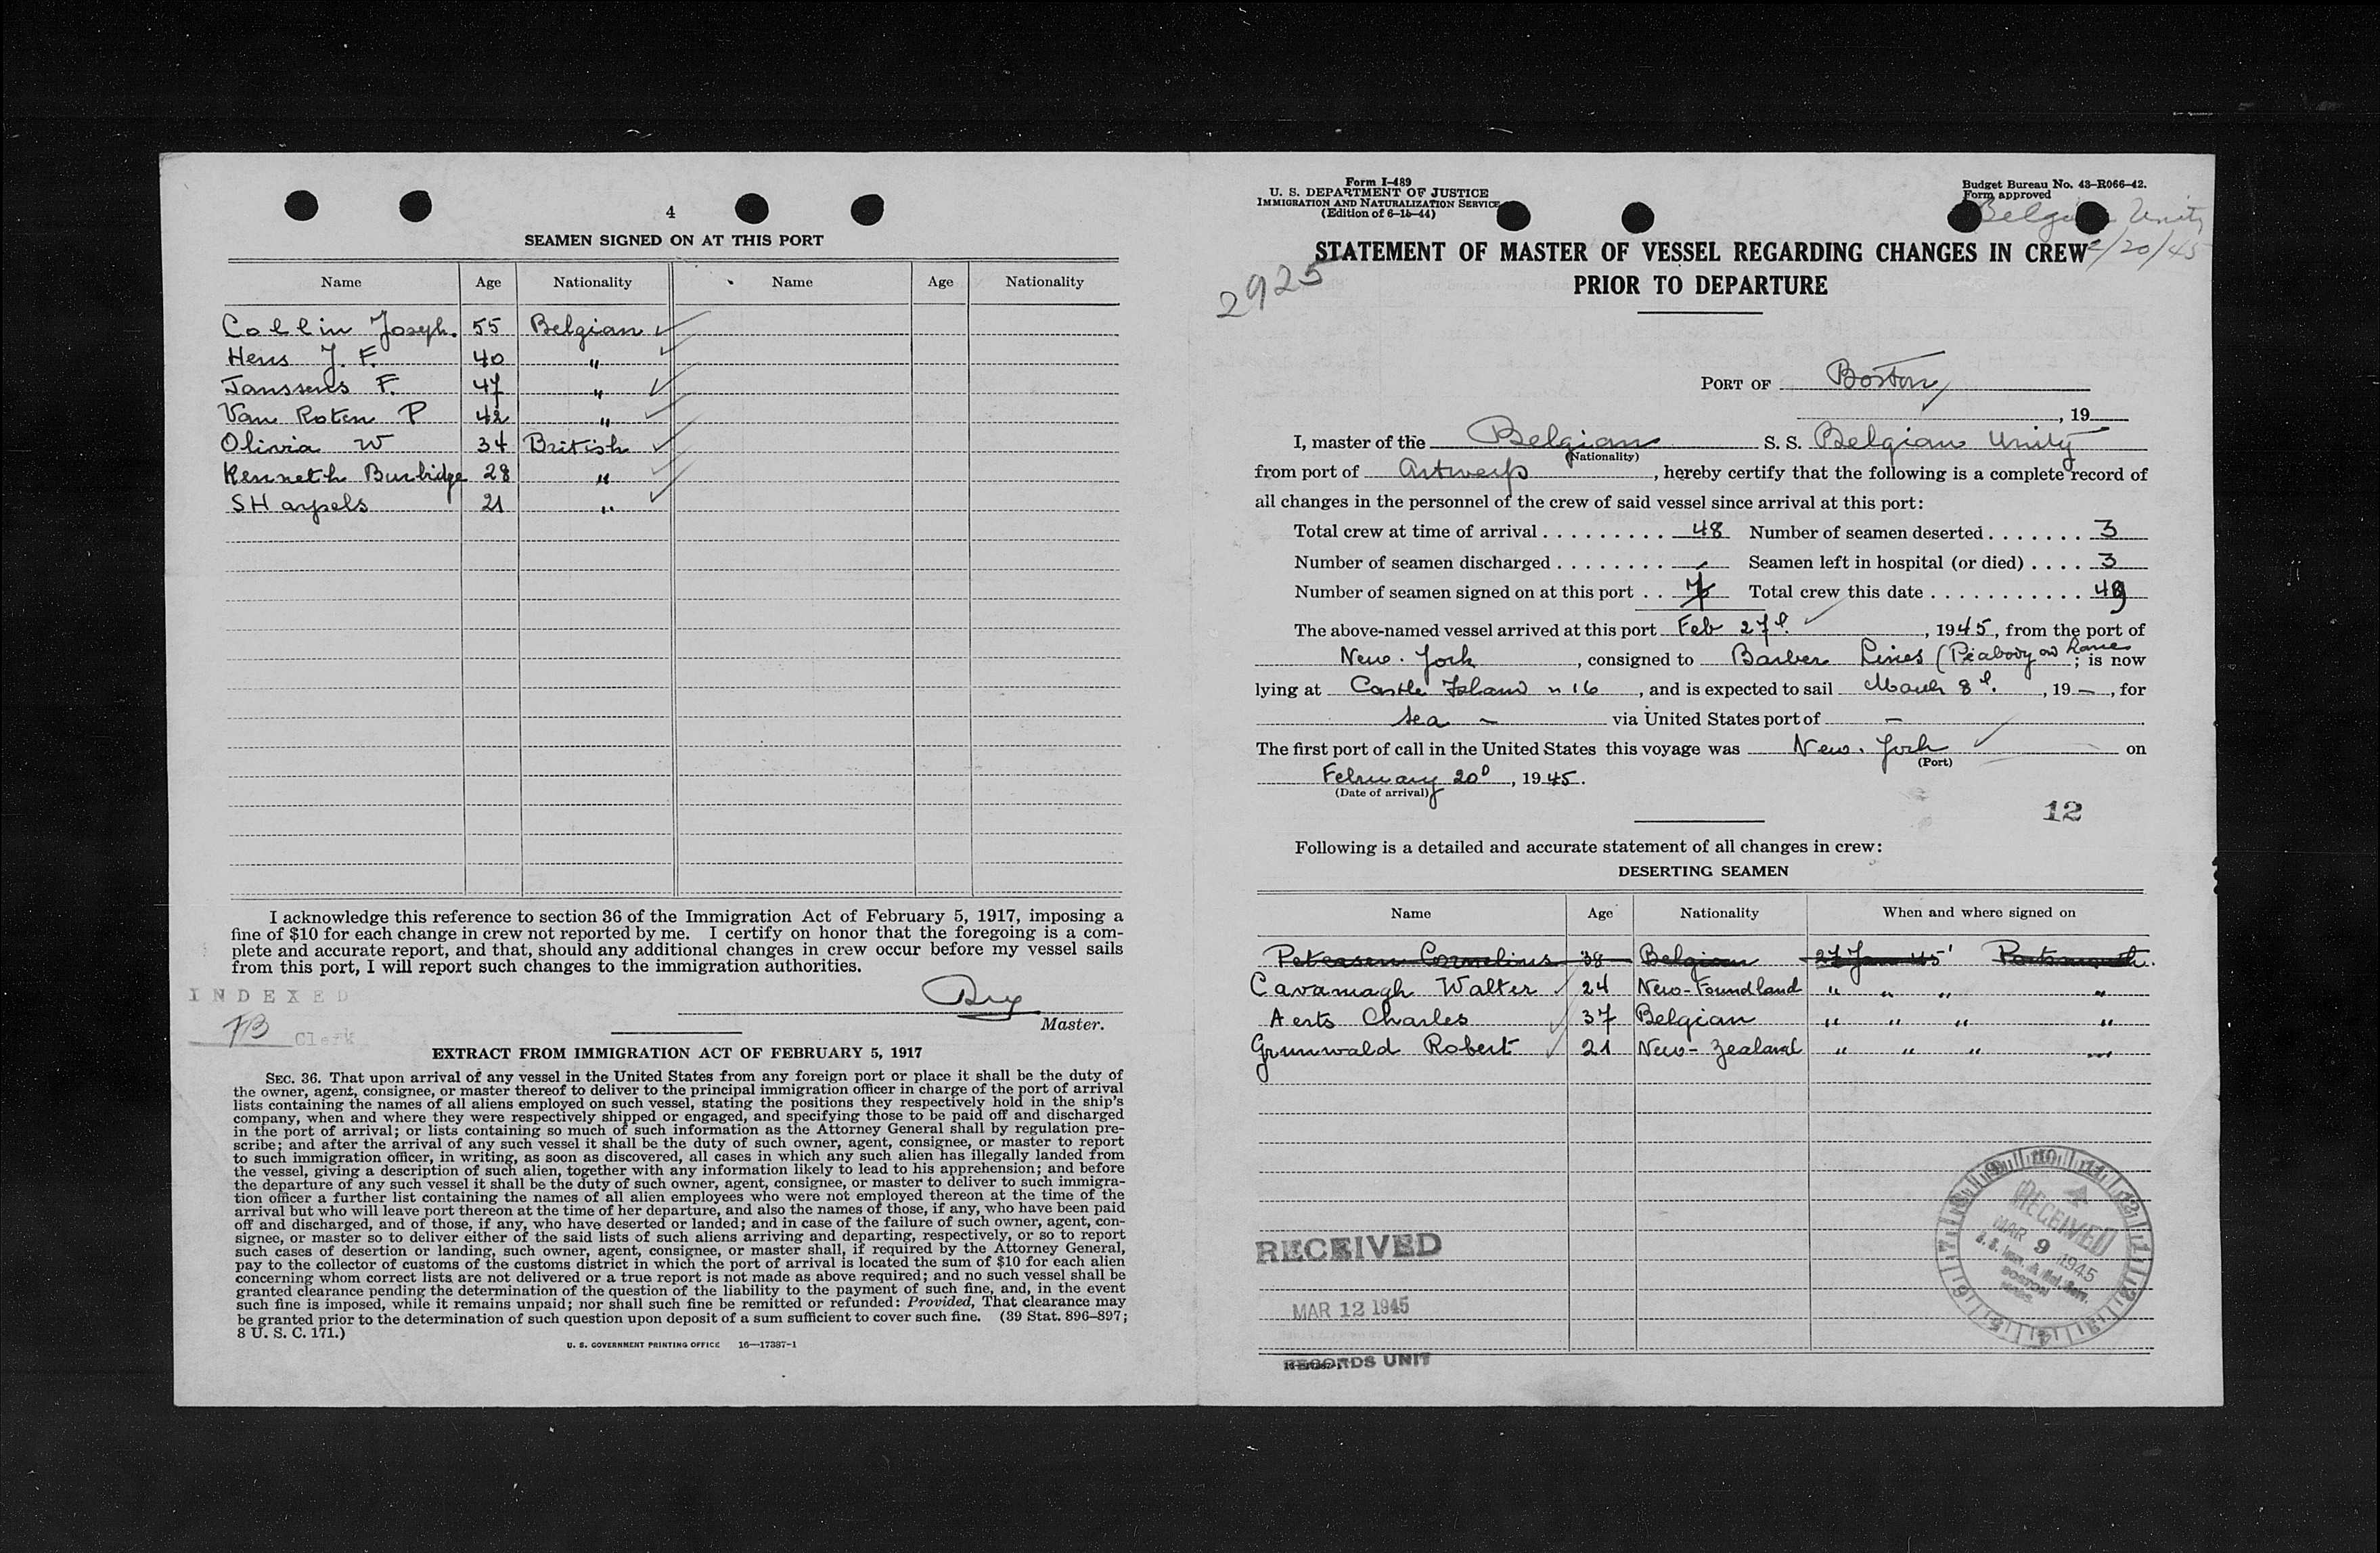 4
SEAMEN SIGNED ON AT THIS PORT
Name Age Nationality Name Age Nationality
Collin Joseph. 55 Belgian
Hens J. F. 40 "
Janssens F. 47 "
Van Roten P 42 "
Olivia W 34 British
Kenneth Burbidge 28 "
SHaysels 21 "
I acknowledge this reference to section 36 of the Immigration Act of February 5, 1917, imposing a
fine of $10 for each change in crew not reported by me. I certify on honor that the foregoing is a com-
plete and accurate report, and that, should any additional changes in crew occur before my vessel sails
from this port, I will report such changes to the immigration authorities.
INDEXED
Master.
Clerk
EXTRACT FROM IMMIGRATION ACT OF FEBRUARY 5, 1917
SEC. 36. That upon arrival of any vessel in the United States from any foreign port or place it shall be the duty of
the owner, agent, consignee, or master thereof to deliver to the principal immigration officer in charge of the port of arrival
lists containing the names of all aliens employed on such vessel, stating the positions they respectively hold in the ship's
company, when and where they were respectively shipped or engaged, and specifying those to be paid off and discharged
in the port of arrival; or lists containing so much of such information as the Attorney General shall by regulation pre-
scribe; and after the arrival of any such vessel it shall be the duty of such owner, agent, consignee, or master to report
to such immigration officer, in writing, as soon as discovered, all cases in which any such alien has illegally landed from
the vessel, giving a description of such alien, together with any information likely to lead to his apprehension; and before
the departure of any such vessel it shall be the duty of such owner, agent, consignee, or master to deliver to such immigra-
tion officer a further list containing the names of all alien employees who were not employed thereon at the time of the
arrival but who will leave port thereon at the time of her departure, and also the names of those, if any, who have been paid
off and discharged, and of those, if any, who have deserted or landed; and in case of the failure of such owner, agent, con-
signee, or master so to deliver either of the said lists of such aliens arriving and departing, respectively, or so to report
such cases of desertion or landing, such owner, agent, consignee, or master shall, if required by the Attorney General,
pay to the collector of customs of the customs district in which the port of arrival is located the sum of $10 for each alien
concerning whom correct lists are not delivered or a true report is not made as above required; and no such vessel shall be
granted clearance pending the determination of the question of the liability to the payment of such fine, and, in the event
such fine is imposed, while it remains unpaid; nor shall such fine be remitted or refunded: Provided, That clearance may
be granted prior to the determination of such question upon deposit of a sum sufficient to cover such fine. (39 Stat. 896–897;
8 U. S. C. 171.)
U. S. GOVERNMENT PRINTING OFFICE 16—17387-1
Form I-489
U. S. DEPARTMENT OF JUSTICE
IMMIGRATION AND NATURALIZATION SERVICE
(Edition of 6-15-44)
Budget Bureau No. 43-R066-42.
Form approved
Belgian Unity
2/20/45
2925
STATEMENT OF MASTER OF VESSEL REGARDING CHANGES IN CREW
PRIOR TO DEPARTURE
PORT OF Boston
, 19
I, master of the Belgian S. S. Belgian Unity
(Nationality)
from port of Antwerp , hereby certify that the following is a complete record of
all changes in the personnel of the crew of said vessel since arrival at this port:
Total crew at time of arrival . . . . . . . . . 48 Number of seamen deserted . . . . . . . 3
Number of seamen discharged . . . . . . . . Seamen left in hospital (or died) . . . . 3
Number of seamen signed on at this port . . 7 Total crew this date . . . . . . . . . . . . 49
The above-named vessel arrived at this port Feb 27 , 1945, from the port of
New. York , consigned to Barber Lines (Peabody and Lane ; is now
lying at Castle Island n 16 , and is expected to sail March 8 , 19 — , for
sea — via United States port of —
The first port of call in the United States this voyage was New. York on
(Port)
February 20 , 1945.
(Date of arrival)
12
Following is a detailed and accurate statement of all changes in crew:
DESERTING SEAMEN
Name Age Nationality When and where signed on
Petersen Cornelius 38 Belgian 27 Jan 45' Portsmouth.
Cavanagh Walter 24 New-Foundland " " " "
Aerts Charles 37 Belgian " " " "
Grunwald Robert 21 New-Zealand " " " "
RECEIVED
MAR 9 1945
BOSTON
RECEIVED
MAR 12 1945
RECORDS UNIT